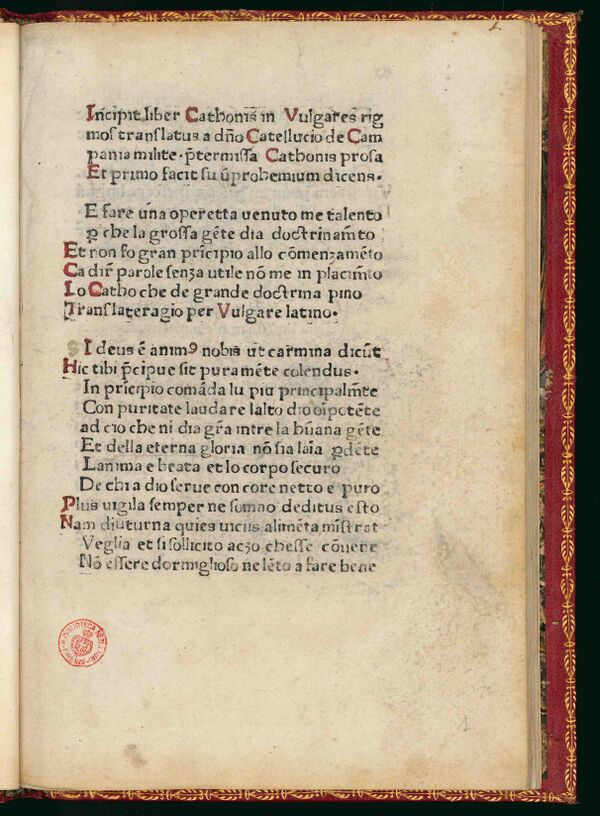 Incipit liber Cathonis in Vulgares rig
mos translatus a dño Catellucio de Cam
pania milite · p̃termissa Cathonis prosa
Et primo facit suũ prohemium dicens·
E fare una operetta uenuto me talento
ꝑ che la grossa gẽte dia doctrinam̃to
Et non fo gran prĩcipio allo cõmenzamẽto
Ca dir̃ parole senza utile nõ me in placim̃to
Lo Catho che de grande doctrina pino
Translateragio per Vulgare latino·
SI deus ẽ animꝰ nobis ut carmina dicũt
Hic tibi p̃cipue sit pura mẽte colendus·
In prĩcipio comãda lu piu principalm̃te
Con puritate laudare lalto dio oĩpotẽte
ad cio che ni dia gr̃a intre la hũana gẽte
Et della eterna gloria nõ sia laĩa ꝑdẽte
Lanima e beata et lo corpo securo
De chi a dio serue con core netto e puro
Plus uigila semper ne somno deditus esto
Nam diuturna quies uicus alimẽta mĩstrat
Veglia et si sollicito aczo chesse cõuene
Nõ essere dormiglioso ne lẽto a fare bene
1